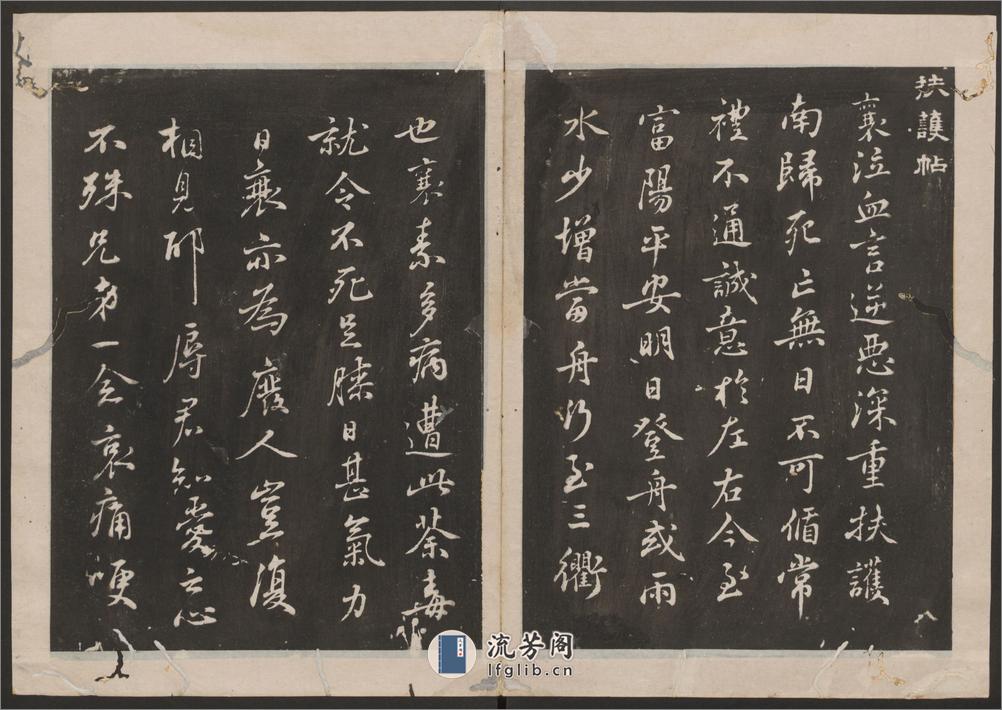 扶護帖
襄泣血言逆惡深重扶護
南歸死亡無日不可循常
禮不通誠意於左右今至
富陽平安明日登舟或雨
水少增當舟行至三衢
也襄素多病遭此荼毒
就令不死足膝日甚氣力
日衰亦為廢人豈復
相見耶 辱君知愛之心
不殊兄弟一念哀痛哽
八
流芳阁
lfglib.cn